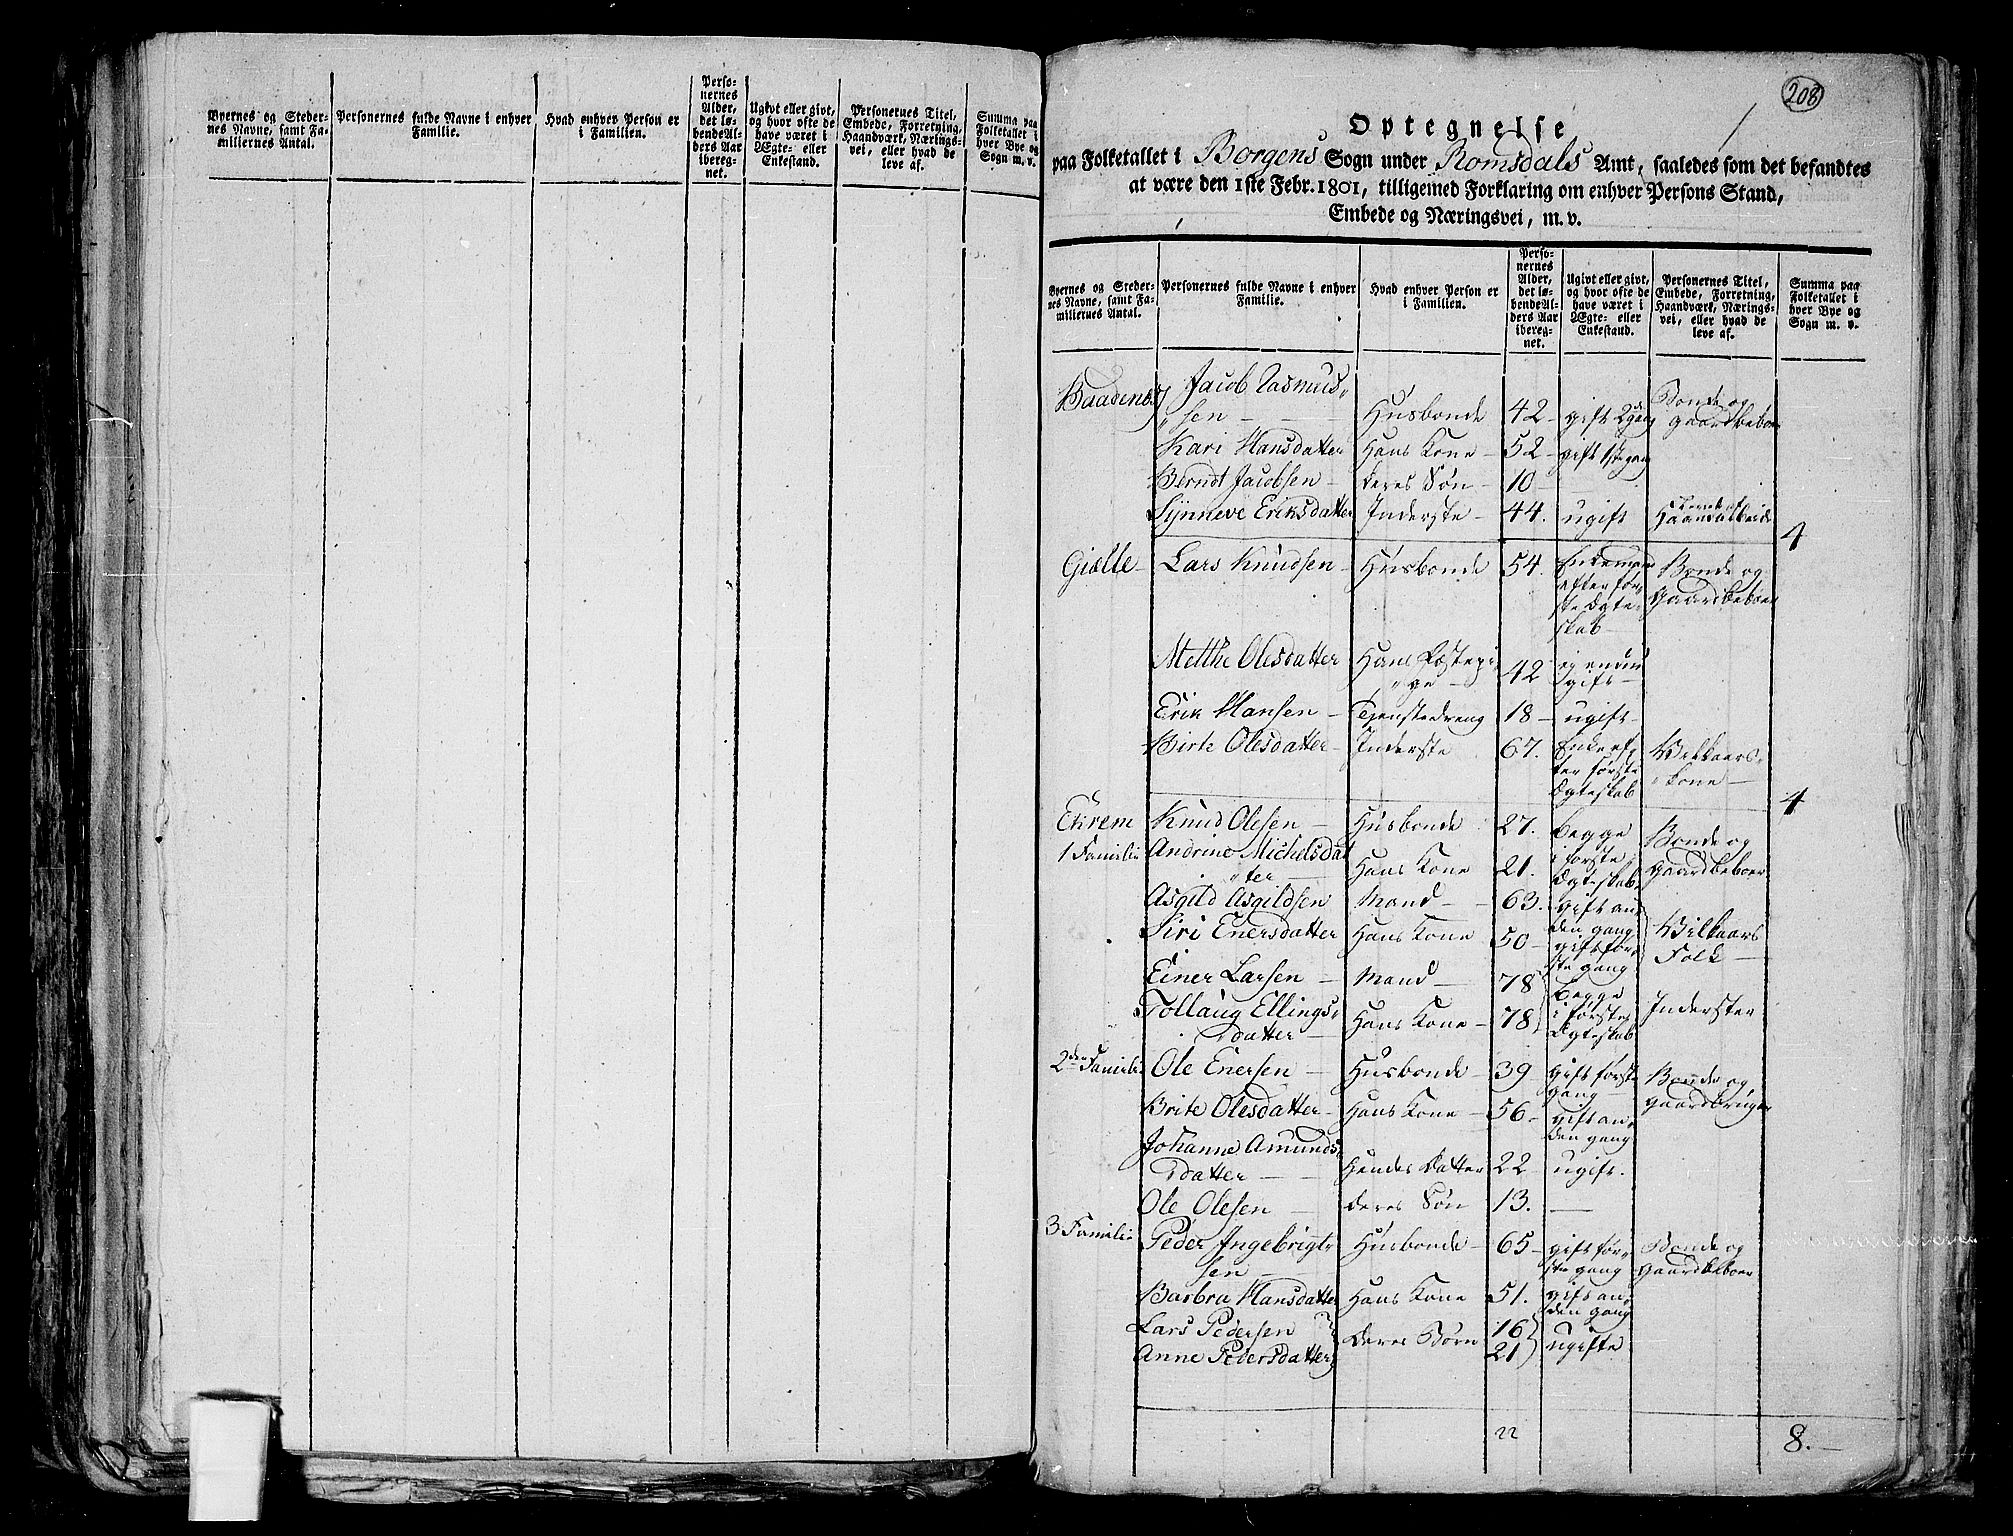 Byernes og Steder-
nes Navne, samt Fa-
miliernes Antal.
Personernes fulde Navne i enhver
Familie.
Hvad enhver Person er
i Familien.
Perso-
nernes
Alder,
det lø-
bende Al-
ders Aar
ibereg-
net.
Ugivt eller givt,
og hvor ofte de
have været i
Ægte- eller
Enkestand.
Personernes Titel,
Embede, Forretning,
Haandværk, Nærings-
vei, eller hvad de
leve af.
Summa paa
Folketallet i
hver Bye og
Sogn m. v.
208
Optegnelse
paa Folketallet i Borgens Sogn under Romsdals Amt, saaledes som det befandtes
at være den 1ste Febr. 1801, tilligemed Forklaring om enhver Persons Stand,
Embede og Næringsvei, m. v.
Byernes og Steder-
nes Navne, samt Fa-
miliernes Antal.
Personernes fulde Navne i enhver
Familie.
Hvad enhver Person er
i Familien.
Perso-
nernes
Alder,
det lø-
bende Al-
ders Aar
ibereg-
net.
Ugivt eller givt,
og hvor ofte de
have været i
Ægte- eller
Enkestand.
Personernes Titel,
Embede, Forretning,
Haandværk, Nærings-
vei, eller hvad de
leve af.
Summa paa
Folketallet i
hver Bye og
Sogn m. v.
Jacob Rasmus-
sen - Husbonde 42 - gift 2 gang Bonde og gaardbeboer
Kari Hansdatter Hans Kone - 52 - gift 1ste gang
Berndt Jacobsen - deres Søn - 10 -
Synneve Eriksdatter Inderste - 44. ugift
4
Giælle - Lars Knudsen - Husbonde 54. Enkemand Bonde og
efter før-
ste Ægte-
skab
gaardbeboer
Metthe Olesdatter Hans Fæstepi-
ge - 42 ej endnu
gift -
Erik Hansen - Tjenestedreng 18 - ugift -
Birte Olesdatter - Inderste 67. Enke ef-
ter første
Ægteskab
Vilkaars-
kone -
4
Ekrem Knud Olesen - Husbonde 27. begge
i første
Ægteskab
Bonde og
gaardbeboer
1 Familie Andrine Michelsdat-
ter - Hans Kone 21.
Asgild Asgildsen Mand - 63. gift an-
den gang
Siri Enersdatter Hans Kone 50 - gift før-
ste gang
Vilkaars
Folk -
Einer Larsen - Mand - 78 begge
i første
Ægteskab
Inderster
Tollaug Ellings-
datter - Hans Kone - 78
2den Familie Ole Enersen - Husbonde - 39 gift første
gang -
Bonde og
gaardbruger
Brite Olesdatter - Hans Kone - 56 - gift an-
den gang
Johanne Amunds-
datter - Hendes Datter 22 ugift.
Ole Olesen - deres Søn 13. -
3 Familie Peder Ingebrigt-
sen - Husbonde - 65 - gift før-
ste gang
Bonde og
gaardbeboer
Barbra Hansdatter Hans Kone 51. gift an-
den gang
Lars Pedersen deres Børn 16 ugifte
Anne Pedersdatter 21
22
8. -